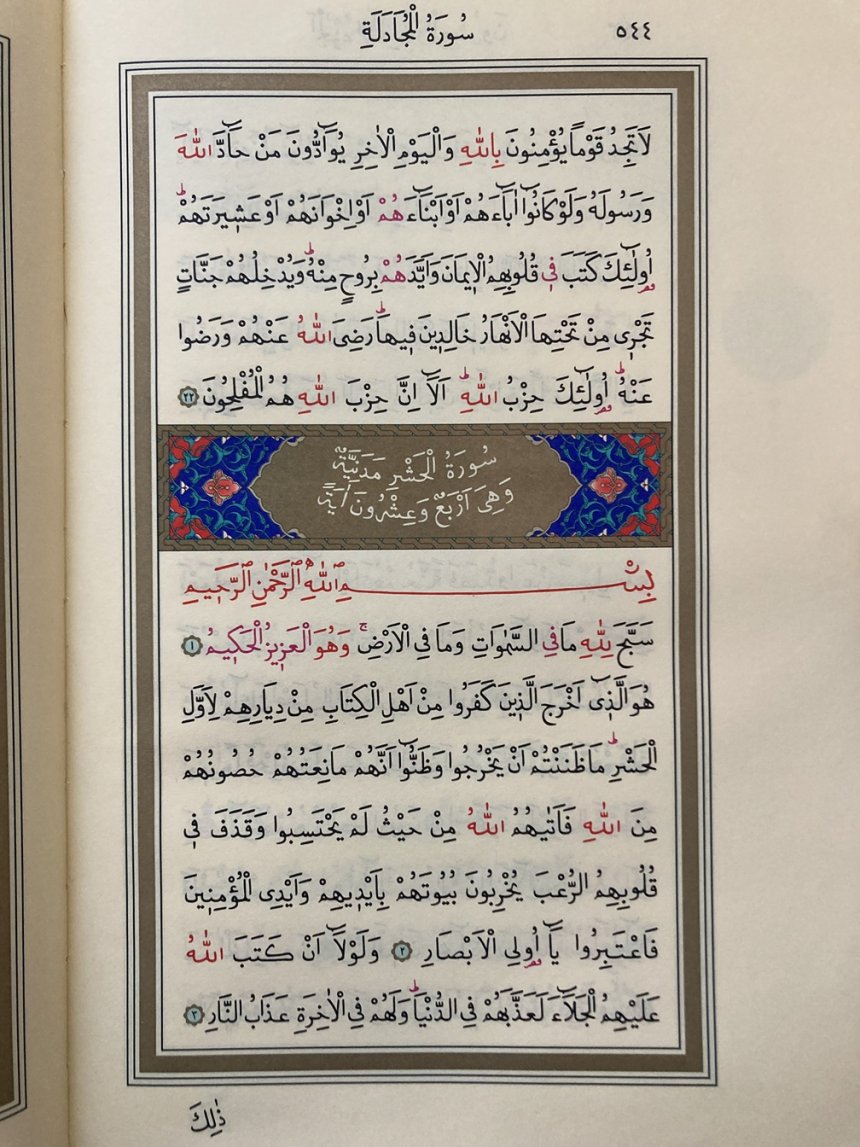 ٥٤٤
سُورَةُ الْمُجَادَلَةِ
لَا تَجِدُ قَوْماً يُؤْمِنُونَ بِاللّٰهِ وَالْيَوْمِ الْاٰخِرِ يُوَٓادُّونَ مَنْ حَٓادَّ اللّٰهَ
وَرَسُولَهُ وَلَوْ كَانُٓوا اٰبَٓاءَهُمْ اَوْ اَبْنَٓاءَهُمْ اَوْ اِخْوَانَهُمْ اَوْ عَشِيرَتَهُمْۜ
اُو۬لٰٓئِكَ كَتَبَ فِي قُلُوبِهِمُ الْاِيمَانَ وَاَيَّدَهُمْ بِرُوحٍ مِنْهُۜ وَيُدْخِلُهُمْ جَنَّاتٍ
تَجْرِي مِنْ تَحْتِهَا الْاَنْهَارُ خَالِدِينَ فِيهَاۜ رَضِيَ اللّٰهُ عَنْهُمْ وَرَضُوا
عَنْهُۜ اُو۬لٰٓئِكَ حِزْبُ اللّٰهِۜ اَلَٓا اِنَّ حِزْبَ اللّٰهِ هُمُ الْمُفْلِحُونَ ٢٢
سُورَةُ الْحَشْرِ مَدَنِيَّةٌ
وَهِيَ اَرْبَعٌ وَعِشْرُونَ اٰيَةً
بِسْمِ اللّٰهِ الرَّحْمٰنِ الرَّحِيمِ
سَبَّحَ لِلّٰهِ مَا فِي السَّمٰوَاتِ وَمَا فِي الْاَرْضِۚ وَهُوَ الْعَزِيزُ الْحَكِيمُ ١
هُوَ الَّذِٓي اَخْرَجَ الَّذِينَ كَفَرُوا مِنْ اَهْلِ الْكِتَابِ مِنْ دِيَارِهِمْ لِاَوَّلِ
الْحَشْرِۜ مَا ظَنَنْتُمْ اَنْ يَخْرُجُوا وَظَنُّٓوا اَنَّهُمْ مَانِعَتُهُمْ حُصُونُهُمْ
مِنَ اللّٰهِ فَاَتٰيهُمُ اللّٰهُ مِنْ حَيْثُ لَمْ يَحْتَسِبُوا وَقَذَفَ فِي
قُلُوبِهِمُ الرُّعْبَ يُخْرِبُونَ بُيُوتَهُمْ بِاَيْدِيهِمْ وَاَيْدِي الْمُؤْمِنِينَ
فَاعْتَبِرُوا يَٓا اُو۬لِي الْاَبْصَارِ ٢ وَلَوْلَٓا اَنْ كَتَبَ اللّٰهُ
عَلَيْهِمُ الْجَلَٓاءَ لَعَذَّبَهُمْ فِي الدُّنْيَاۜ وَلَهُمْ فِي الْاٰخِرَةِ عَذَابُ النَّارِ ٣
ذٰلِكَ